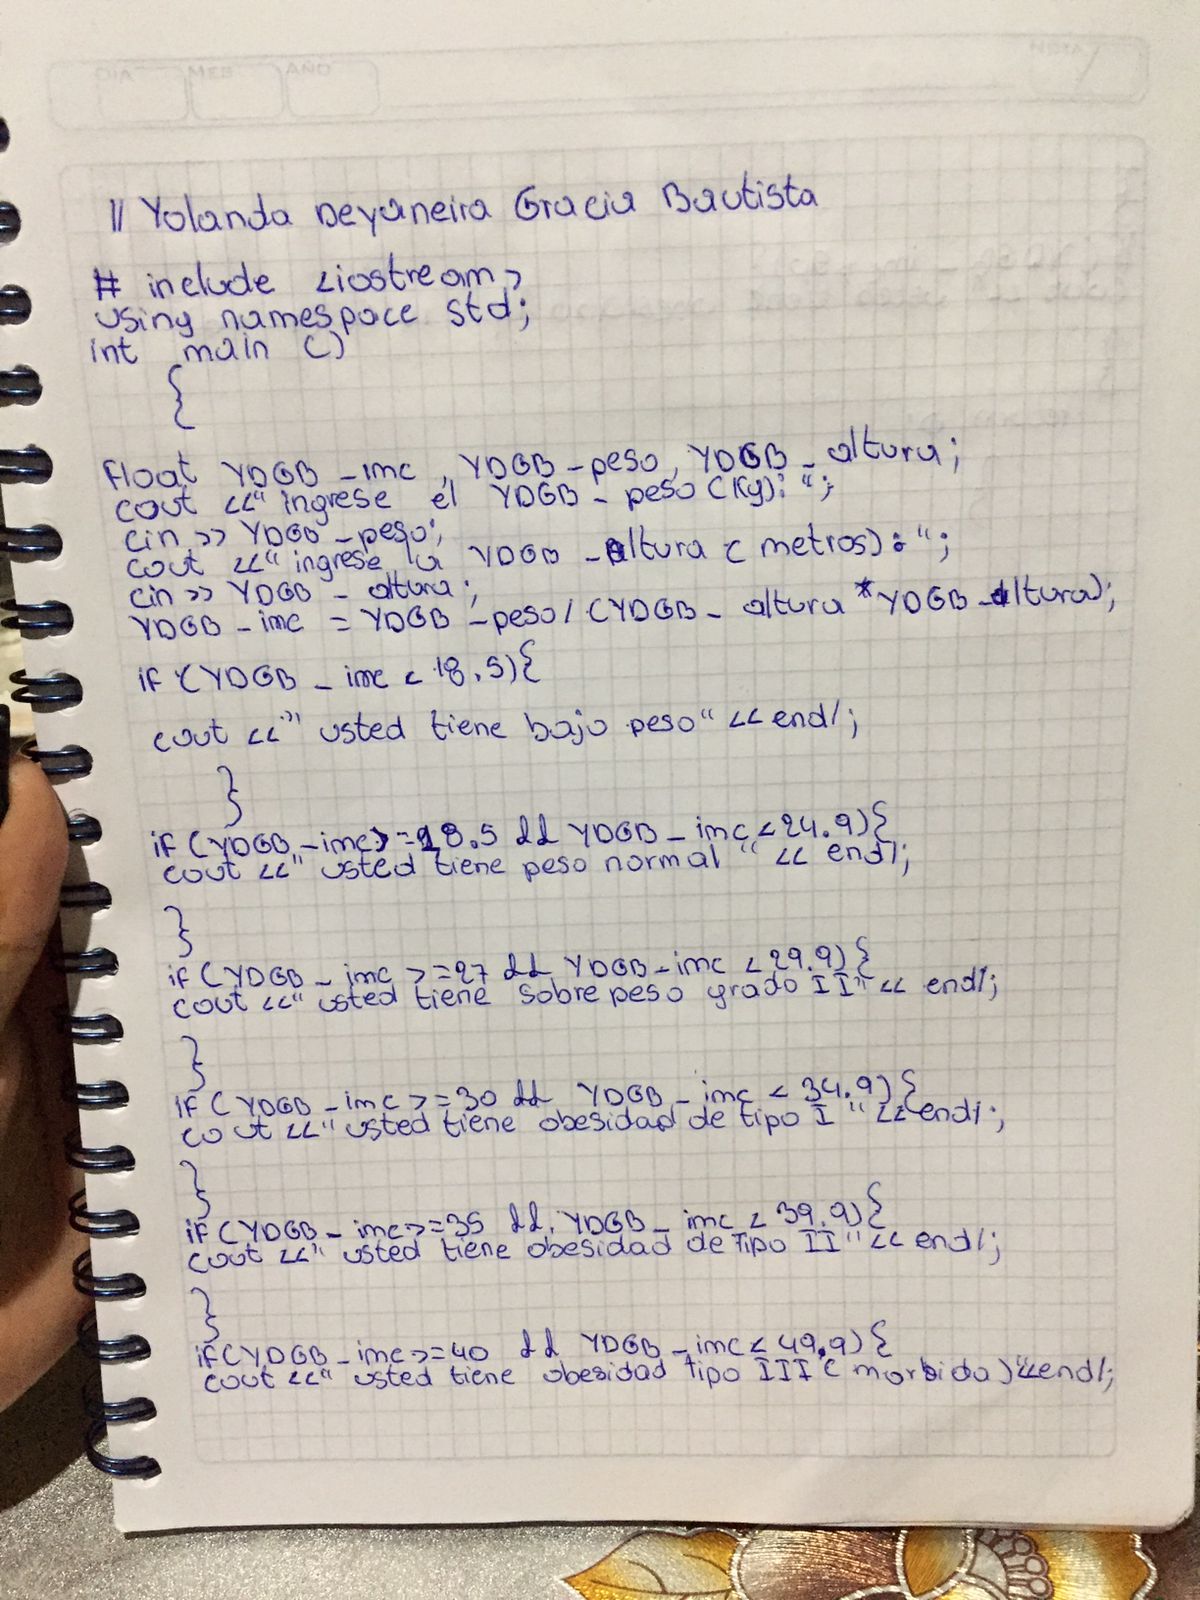 DIA MES AÑO
// Yolanda Deyaneira Gracia Bautista
# include <iostream>
using namespace std;
int main ()
{
float YDGB _imc , YDGB _peso, YDGB _ altura;
cout <<" ingrese el YDGB _ peso (Kg): ";
cin >> YDGB _peso;
cout <<" ingrese la YDGB _altura ( metros): ";
cin >> YDGB _ altura;
YDGB _ imc = YDGB _peso / (YDGB _ altura * YDGB _altura);
if (YDGB _ imc < 18.5){
cout <<" usted tiene bajo peso" << endl;
}
if (YDGB _imc>=18.5 && YDGB _ imc <24.9){
cout <<" usted tiene peso normal " << endl;
}
if (YDGB _ imc >=27 && YDGB _imc <29.9){
cout <<" usted tiene sobre peso grado II" << endl;
}
if (YDGB _imc >=30 && YDGB _ imc < 34.9){
cout <<" usted tiene obesidad de tipo I " << endl;
}
if (YDGB _ imc>=35 &&, YDGB _ imc < 39.9){
cout <<" usted tiene obesidad de Tipo II" << endl;
}
if (YDGB _imc>=40 && YDGB _imc< 49.9){
cout <<" usted tiene obesidad tipo III ( morbida )"<<endl;